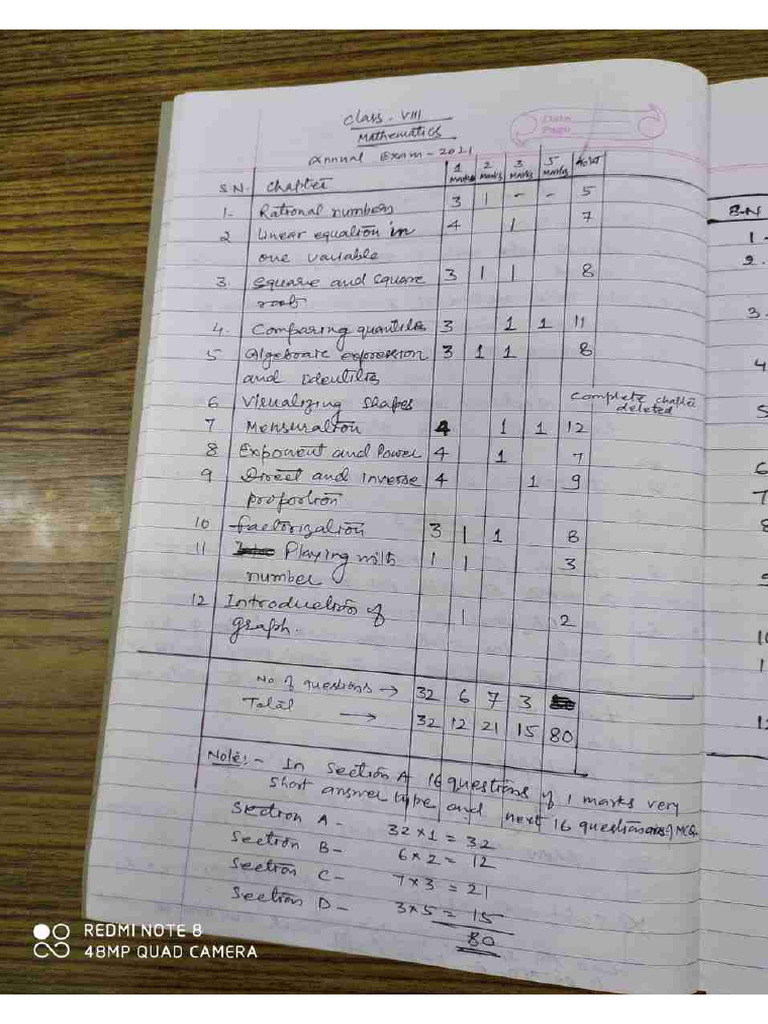 Class - VIII
Mathematics
Annual Exam - 2021
Date
Page
S.N. Chapter 1 marks 2 marks 3 marks 5 marks Total
1- Rational numbers 3 1 - - 5
2 Linear equation in 4 1 7
one variable
3. Square and square 3 1 1 8
root
4. Comparing quantities 3 1 1 11
5 Algebraic expression 3 1 1 8
and identities
6 Visualizing shapes Complete chapter
deleted
7 Mensuration 4 1 1 12
8 Exponent and Power 4 1 7
9 Direct and inverse 4 1 9
proportion
10 factorization 3 1 1 8
11 Playing with 1 1 3
number
12 Introduction of 1 2
graph.
No of questions → 32 6 7 3
Total → 32 12 21 15 80
Note:- In section A 16 questions of 1 marks very
short answer type and next 16 questions are of MCQ.
Section A - 32 × 1 = 32
Section B - 6 × 2 = 12
Section C - 7 × 3 = 21
Section D - 3 × 5 = 15
80
S.N
1 -
2.
3.
4
5
6
7
8
9
10
1
12
REDMI NOTE 8
48MP QUAD CAMERA